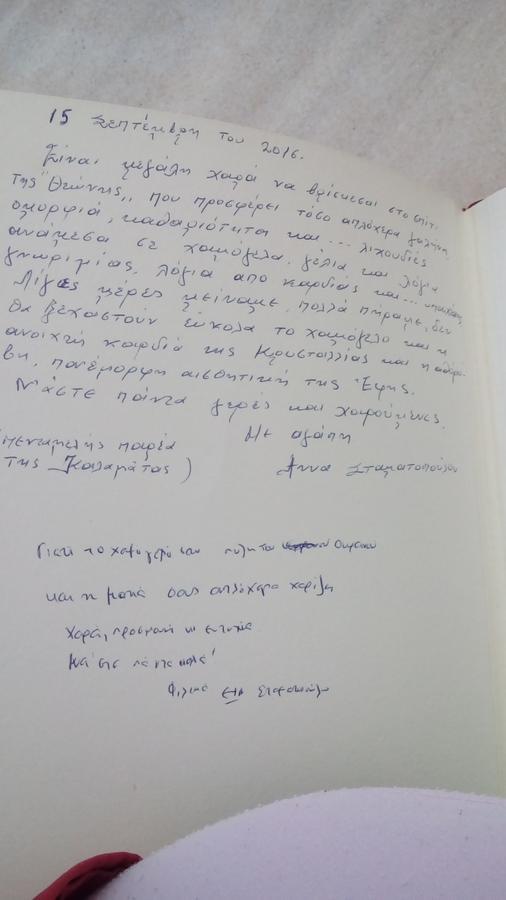 15 Σεπτέμβρη του 2016.
Είναι μεγάλη χαρά να βρίσκεσαι στο σπίτι
της "Θεώνης,, που προσφέρει τόσο απλόχερα γαλήνη,
ομορφιά, καθαριότητα και ... λιχουδιές
ανάμεσα σε χαμόγελα, γέλια και λόγια
γνωριμίας, λόγια από καρδιάς και ...
Λίγες μέρες μείναμε, πολλά πήραμε, δεν
θα ξεχαστούν εύκολα το χαμόγελο και η
ανοιχτή καρδιά της Κρυσταλλίας και η αθόρυ-
βη, πανέμορφη αισθητική της Έφης.
Νάστε πάντα γερές και χαρούμενες.
Με αγάπη
(πενταμελής παρέα
της Καλαμάτας)
Άννα Σταματοπούλου
Γιατί το χαμόγελό σου ουρανού
και η ματιά σας απλόχερα χαρίζει
Χαρά, προσμονή κι ευτυχία
Νά στε πάντα καλά!
Φιλικά